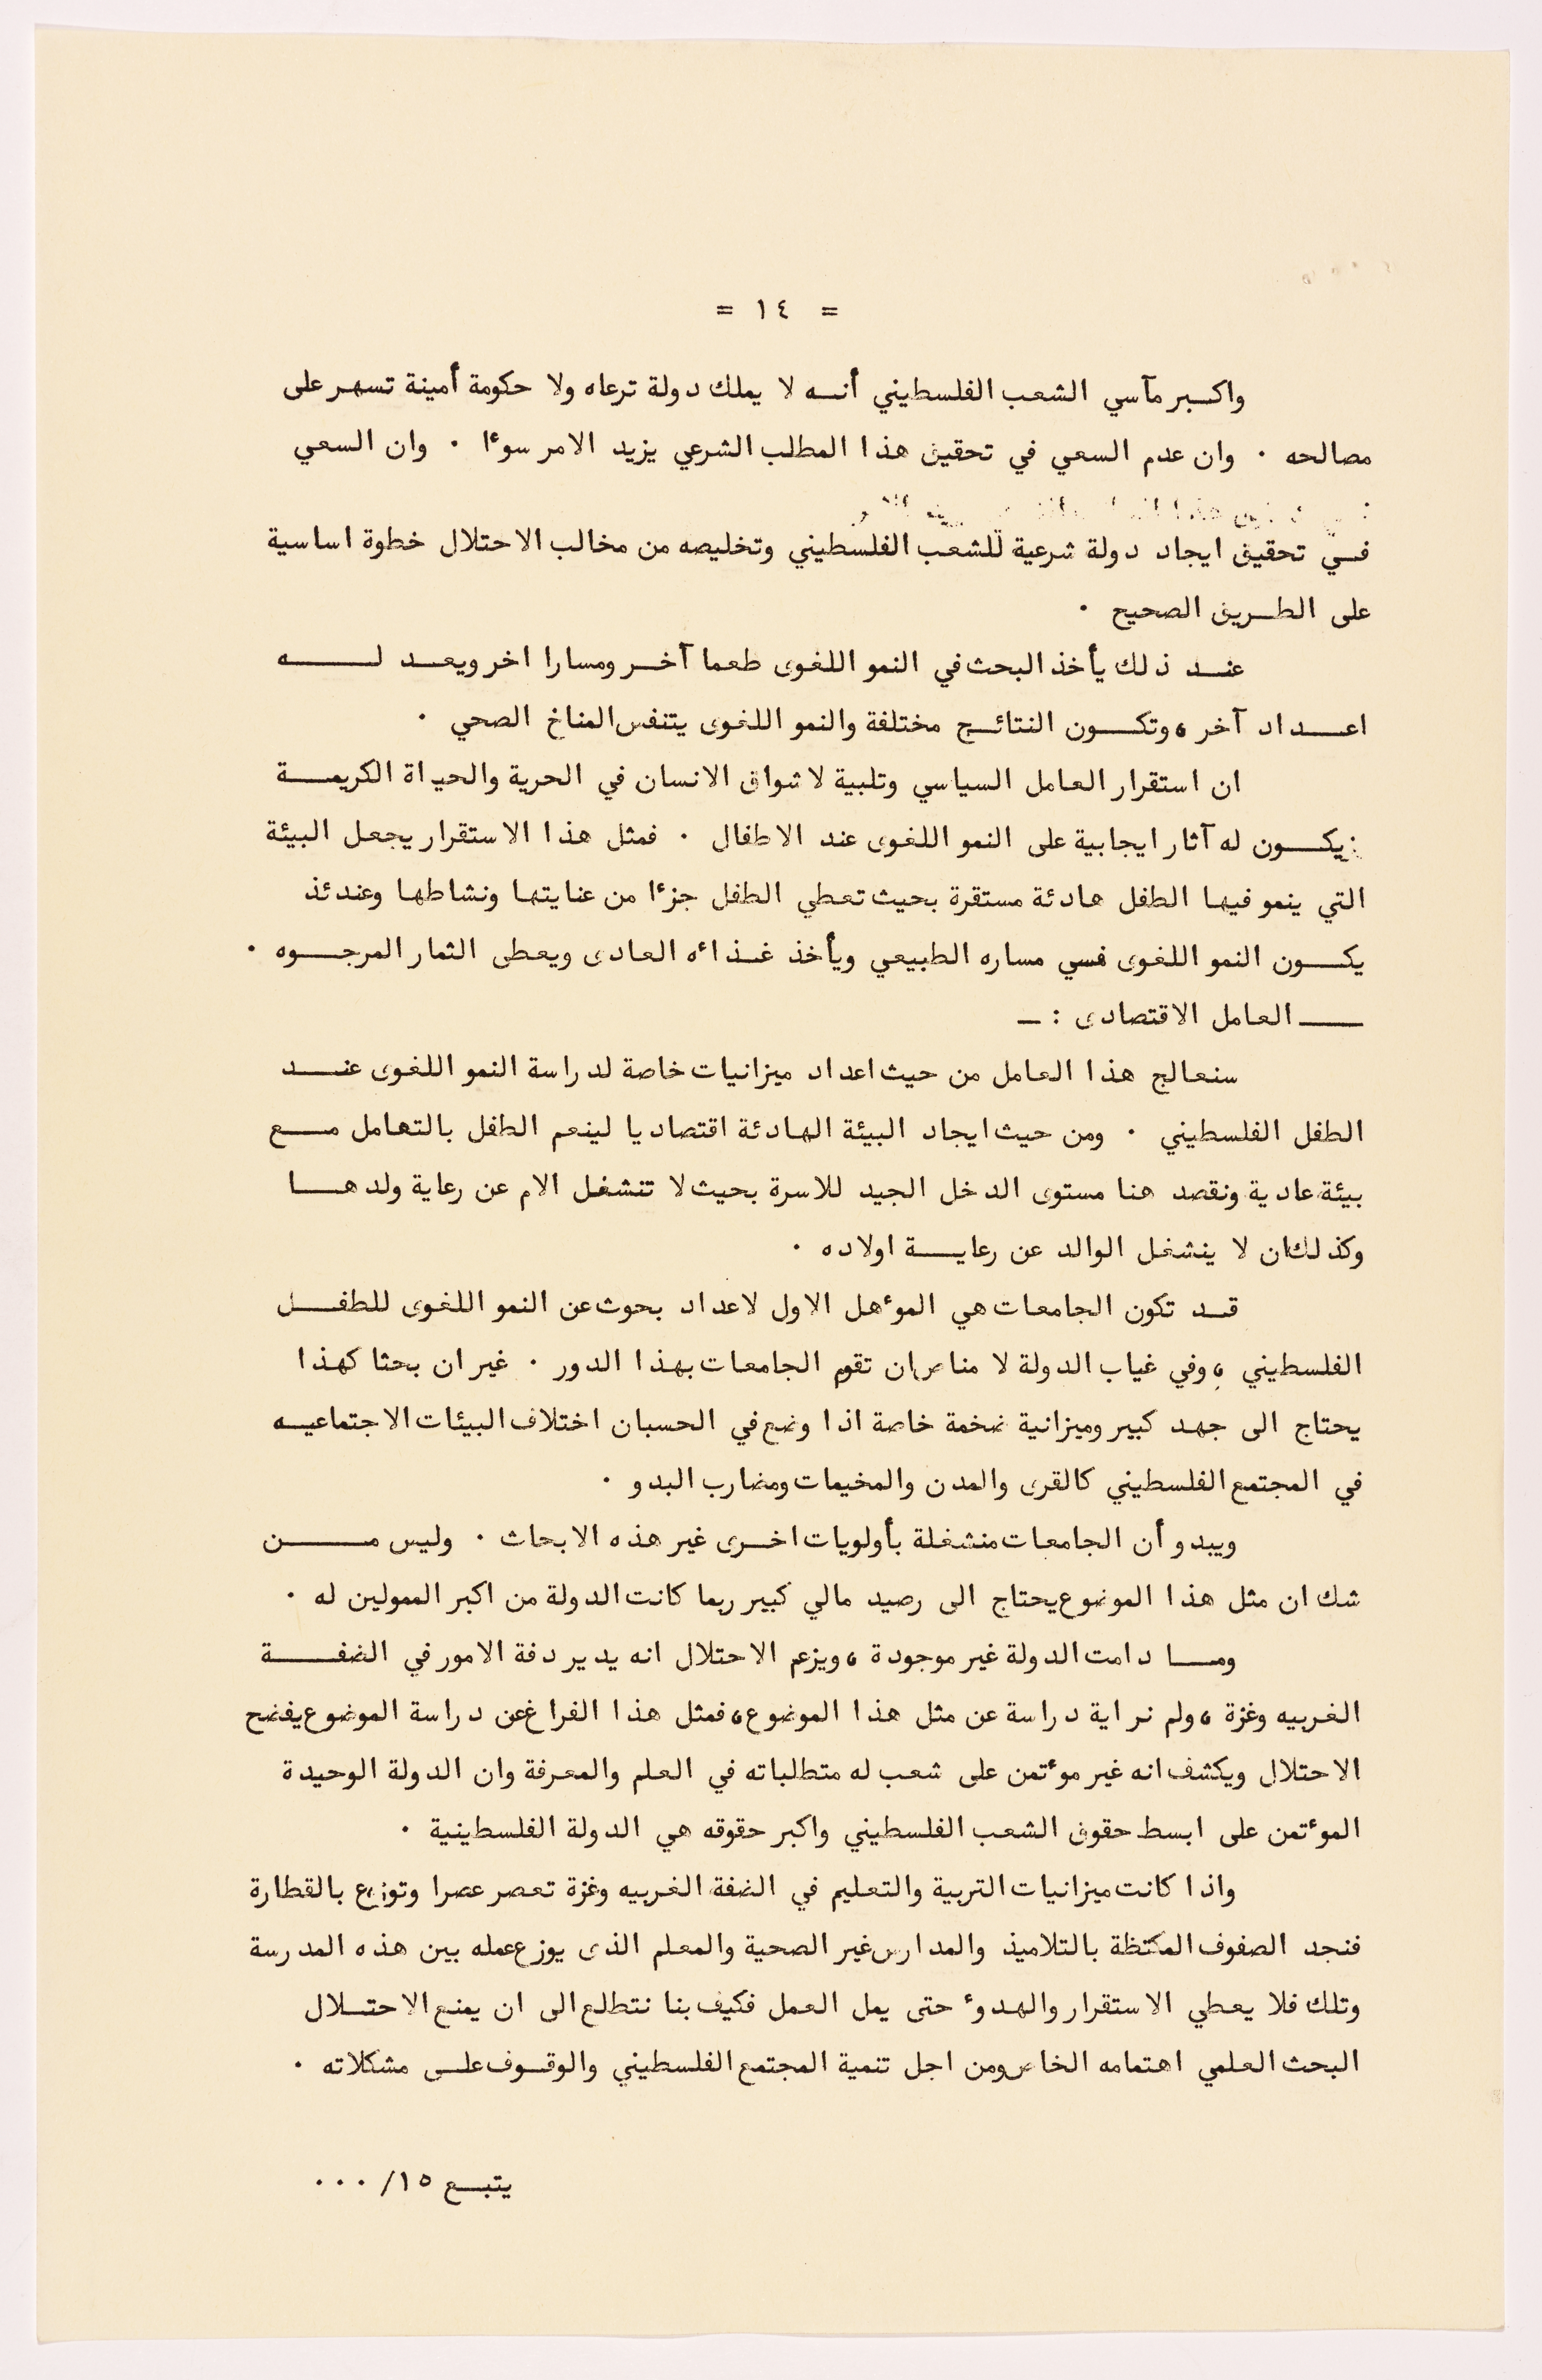 = ١٤ =
واكبر مآسي الشعب الفلسطيني أنه لا يملك دولة ترعاه ولا حكومة أمينة تسهر على
مصالحه . وان عدم السعي في تحقيق هذا المطلب الشرعي يزيد الامر سوءا . وان السعي
في تحقيق ايجاد دولة شرعية للشعب الفلسطيني وتخليصه من مخالب الاحتلال خطوة اساسية
على الطريق الصحيح .
عند ذلك يأخذ البحث في النمو اللغوى طعما آخر ومسارا اخر ويعد له
اعداد آخر ، وتكون النتائج مختلفة والنمو اللغوى يتنفس المناخ الصحي .
ان استقرار العامل السياسي وتلبية لاشواق الانسان في الحرية والحياة الكريمة
يكون له آثار ايجابية على النمو اللغوى عند الاطفال . فمثل هذا الاستقرار يجعل البيئة
التي ينمو فيها الطفل هادئة مستقرة بحيث تعطي الطفل جزءا من عنايتها ونشاطها وعندئذ
يكون النمو اللغوى في مساره الطبيعي ويأخذ غذاءه العادى ويعطى الثمار المرجوه .
ـ العامل الاقتصادى : ـ
سنعالج هذا العامل من حيث اعداد ميزانيات خاصة لدراسة النمو اللغوى عند
الطفل الفلسطيني . ومن حيث ايجاد البيئة الهادئة اقتصاديا لينعم الطفل بالتعامل مع
بيئة عادية ونقصد هنا مستوى الدخل الجيد للاسرة بحيث لا تنشغل الام عن رعاية ولدها
وكذلك ان لا ينشغل الوالد عن رعاية اولاده .
قد تكون الجامعات هي الموءهل الاول لاعداد بحوث عن النمو اللغوى للطفل
الفلسطيني ، وفي غياب الدولة لا مناص ان تقوم الجامعات بهذا الدور . غير ان بحثا كهذا
يحتاج الى جهد كبير وميزانية ضخمة خاصة اذا وضع في الحسبان اختلاف البيئات الاجتماعيه
في المجتمع الفلسطيني كالقرى والمدن والمخيمات ومضارب البدو .
ويبدو أن الجامعات منشغلة بأولويات اخرى غير هذه الابحاث . وليس من
شك ان مثل هذا الموضوع يحتاج الى رصيد مالي كبير ربما كانت الدولة من اكبر الممولين له .
وما دامت الدولة غير موجودة ، ويزعم الاحتلال انه يدير دفة الامور في الضفة
الغربيه وغزة ، ولم نر اية دراسة عن مثل هذا الموضوع ، فمثل هذا الفراغ عن دراسة الموضوع يفضح
الاحتلال ويكشف انه غير موءتمن على شعب له متطلباته في العلم والمعرفة وان الدولة الوحيدة
الموءتمن على ابسط حقوق الشعب الفلسطيني واكبر حقوقه هي الدولة الفلسطينية .
واذا كانت ميزانيات التربية والتعليم في الضفة الغربيه وغزة تعصر عصرا وتوزع بالقطارة
فنجد الصفوف المكتظة بالتلاميذ والمدارس غير الصحية والمعلم الذى يوزع عمله بين هذه المدرسة
وتلك فلا يعطي الاستقرار والهدوء حتى يمل العمل فكيف بنا نتطلع الى ان يمنع الاحتلال
البحث العلمي اهتمامه الخاص ومن اجل تنمية المجتمع الفلسطيني والوقوف على مشكلاته .
يتبع ١٥/ ...